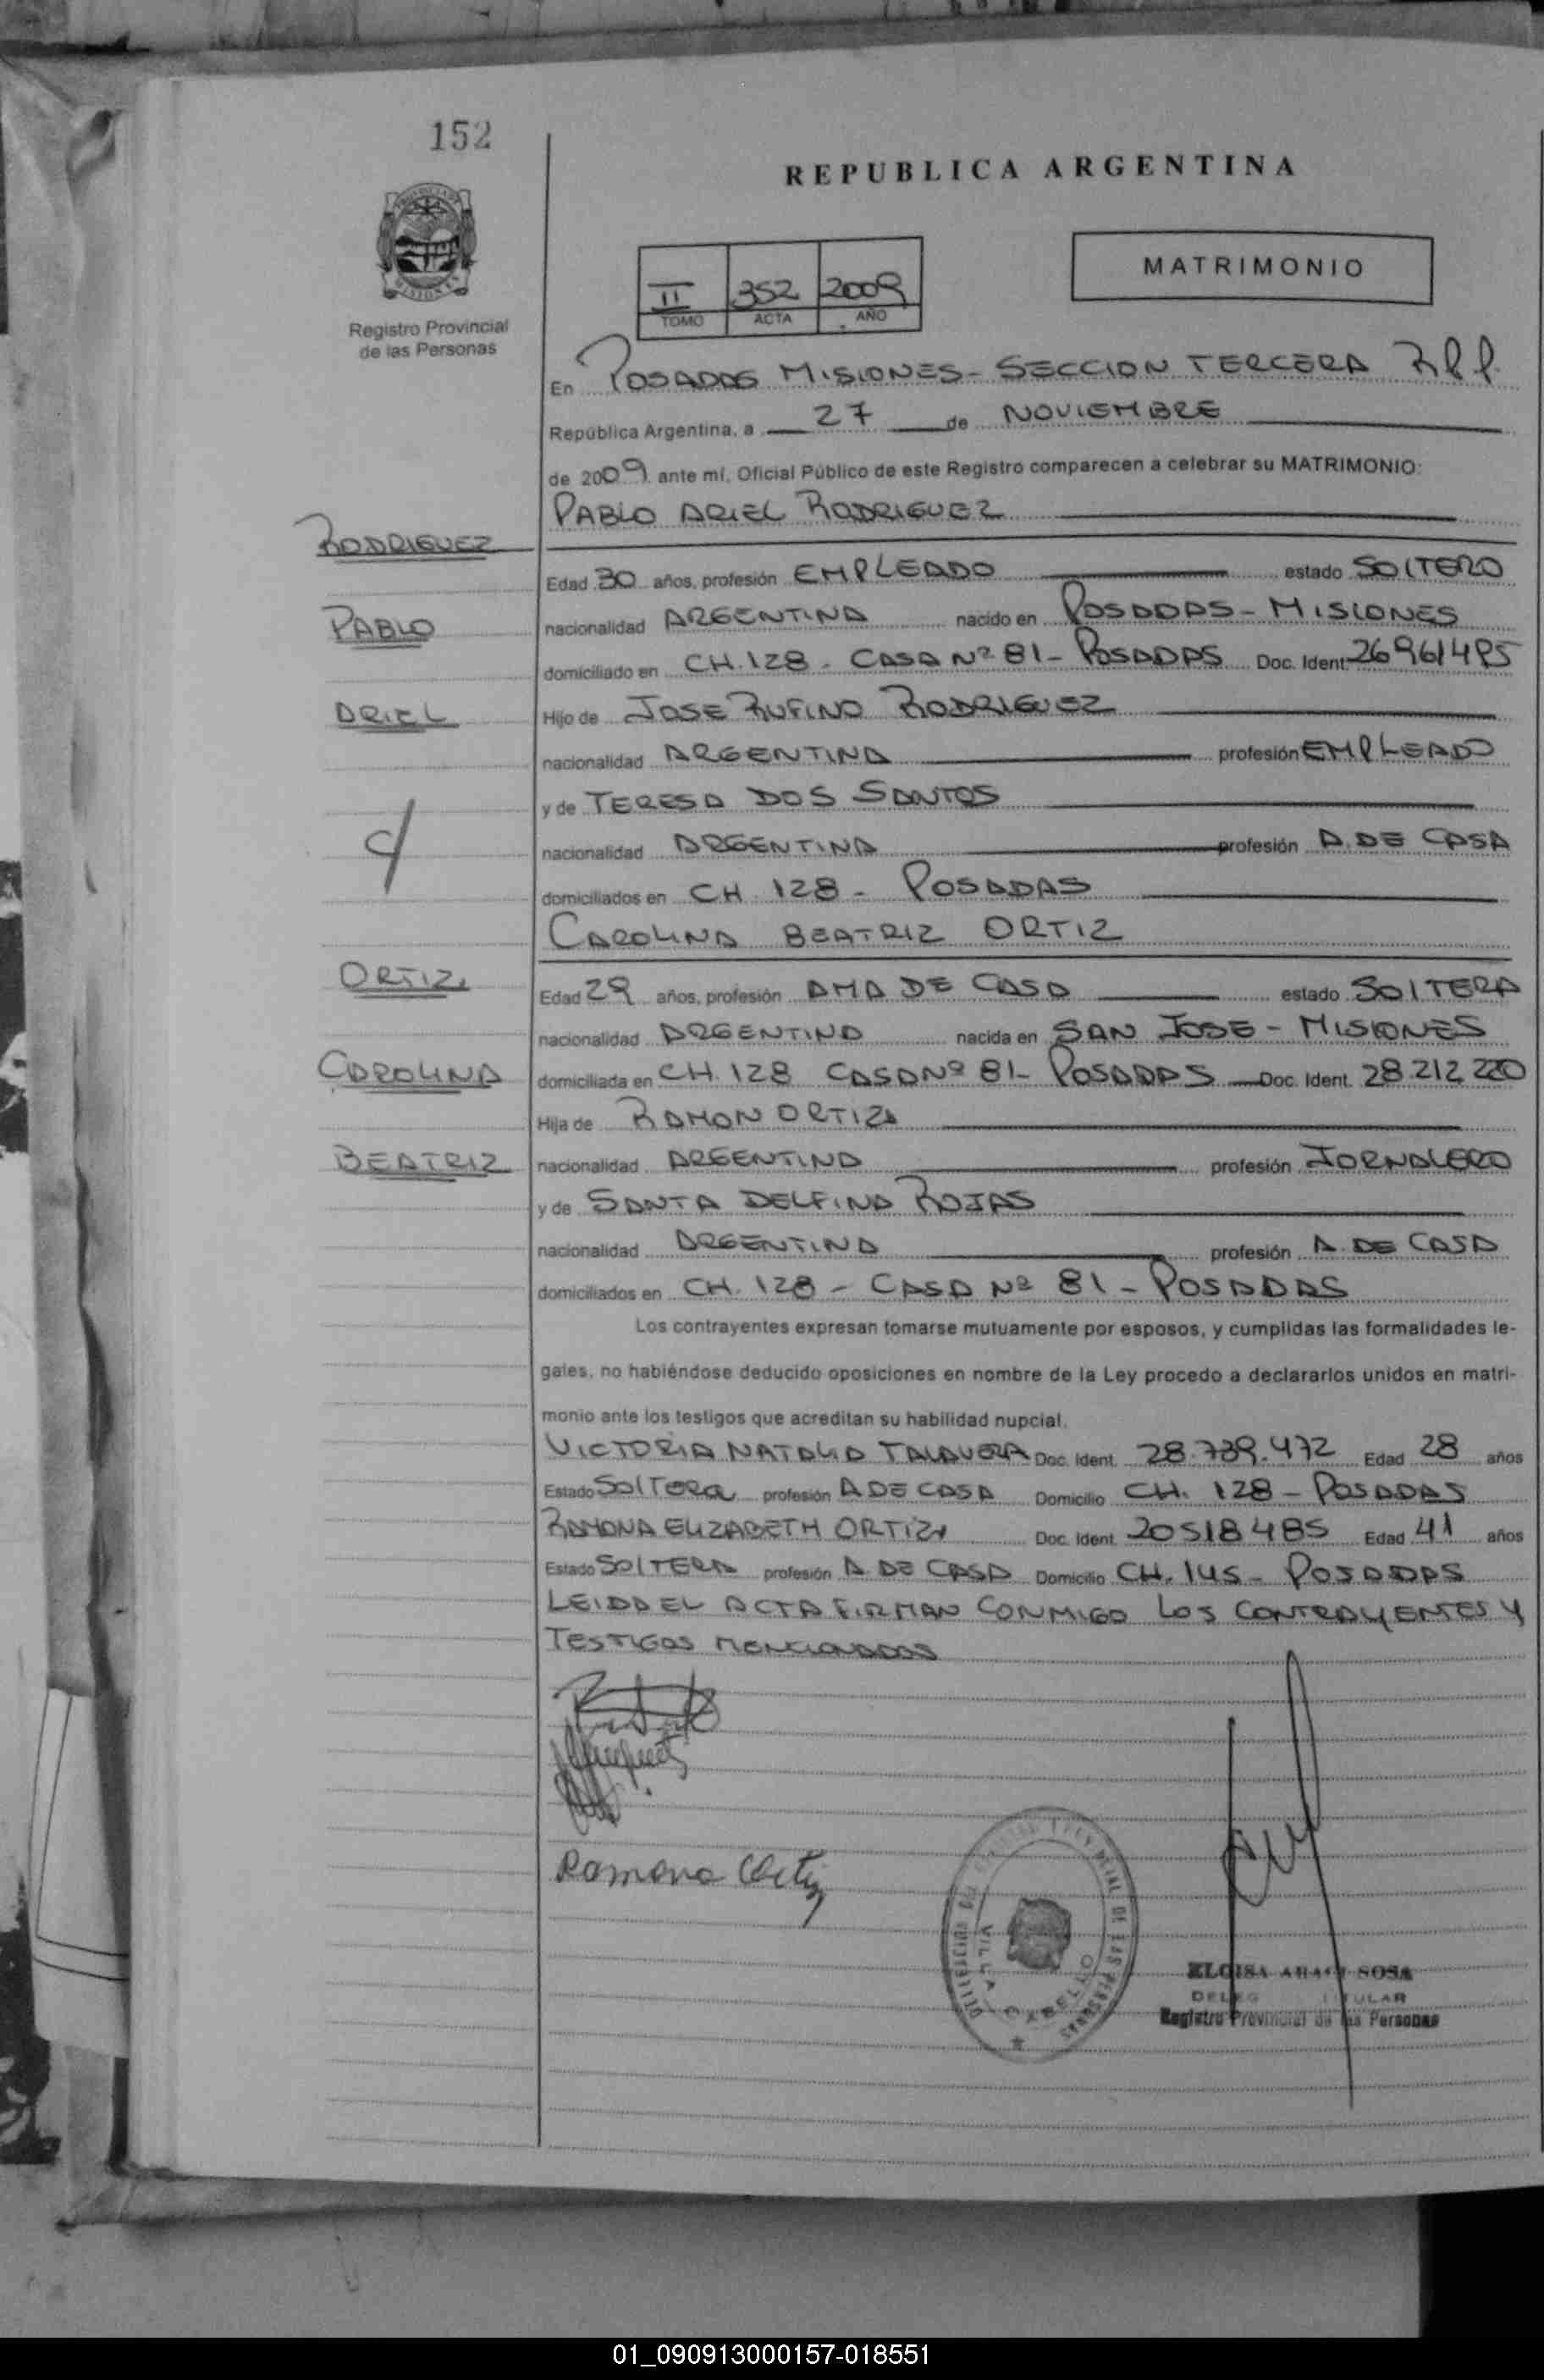 152
REPUBLICA ARGENTINA
MATRIMONIO
II 352 2009
TOMO ACTA AÑO
Registro Provincial
de las Personas
En POSADAS MISIONES - SECCION TERCERA
República Argentina, a 27 de NOVIEMBRE
de 2009 ante mí, Oficial Público de este Registro comparecen a celebrar su MATRIMONIO:
PABLO ARIEL RODRIGUEZ
RODRIGUEZ
Edad 30 años, profesión EMPLEADO estado SOLTERO
PABLO
nacionalidad ARGENTINA nacido en POSADAS - MISIONES
domiciliado en CH. 128 - CASA Nº 81 - POSADAS Doc. Ident.
ARIEL
Hijo de JOSE RUFINO RODRIGUEZ
nacionalidad ARGENTINA profesión EMPLEADO
y de TERESA DOS SANTOS
nacionalidad ARGENTINA profesión A. DE CASA
domiciliados en CH. 128 - POSADAS
CAROLINA BEATRIZ ORTIZ
ORTIZ
Edad 29 años, profesión AMA DE CASA estado SOLTERA
nacionalidad ARGENTINA nacida en SAN JOSE - MISIONES
CAROLINA
domiciliada en CH. 128 CASA Nº 81 - POSADAS Doc. Ident. 28.212.220
Hija de RAMON ORTIZ
BEATRIZ
nacionalidad ARGENTINA profesión JORNALERO
y de SANTA DELFINA ROJAS
nacionalidad ARGENTINA profesión A. DE CASA
domiciliados en CH. 128 - CASA Nº 81 - POSADAS
Los contrayentes expresan tomarse mutuamente por esposos, y cumplidas las formalidades le-
gales, no habiéndose deducido oposiciones en nombre de la Ley procedo a declararlos unidos en matri-
monio ante los testigos que acreditan su habilidad nupcial.
VICTORIA NATALIA TALAVERA Doc. Ident. 28.739.472 Edad 28 años
Estado SOLTERA profesión A DE CASA Domicilio CH. 128 - POSADAS
RAMONA ELIZABETH ORTIZ Doc. Ident. 20518485 Edad 41 años
Estado SOLTERA profesión A. DE CASA Domicilio CH. 145 - POSADAS
LEIDA EL ACTA FIRMAN CONMIGO LOS CONTRAYENTES Y
TESTIGOS MENCIONADOS
Ramona Ortiz
VILLA CABELLO
ELOISA SOSA
Registro Provincial de las Personas
01_090913000157-018551